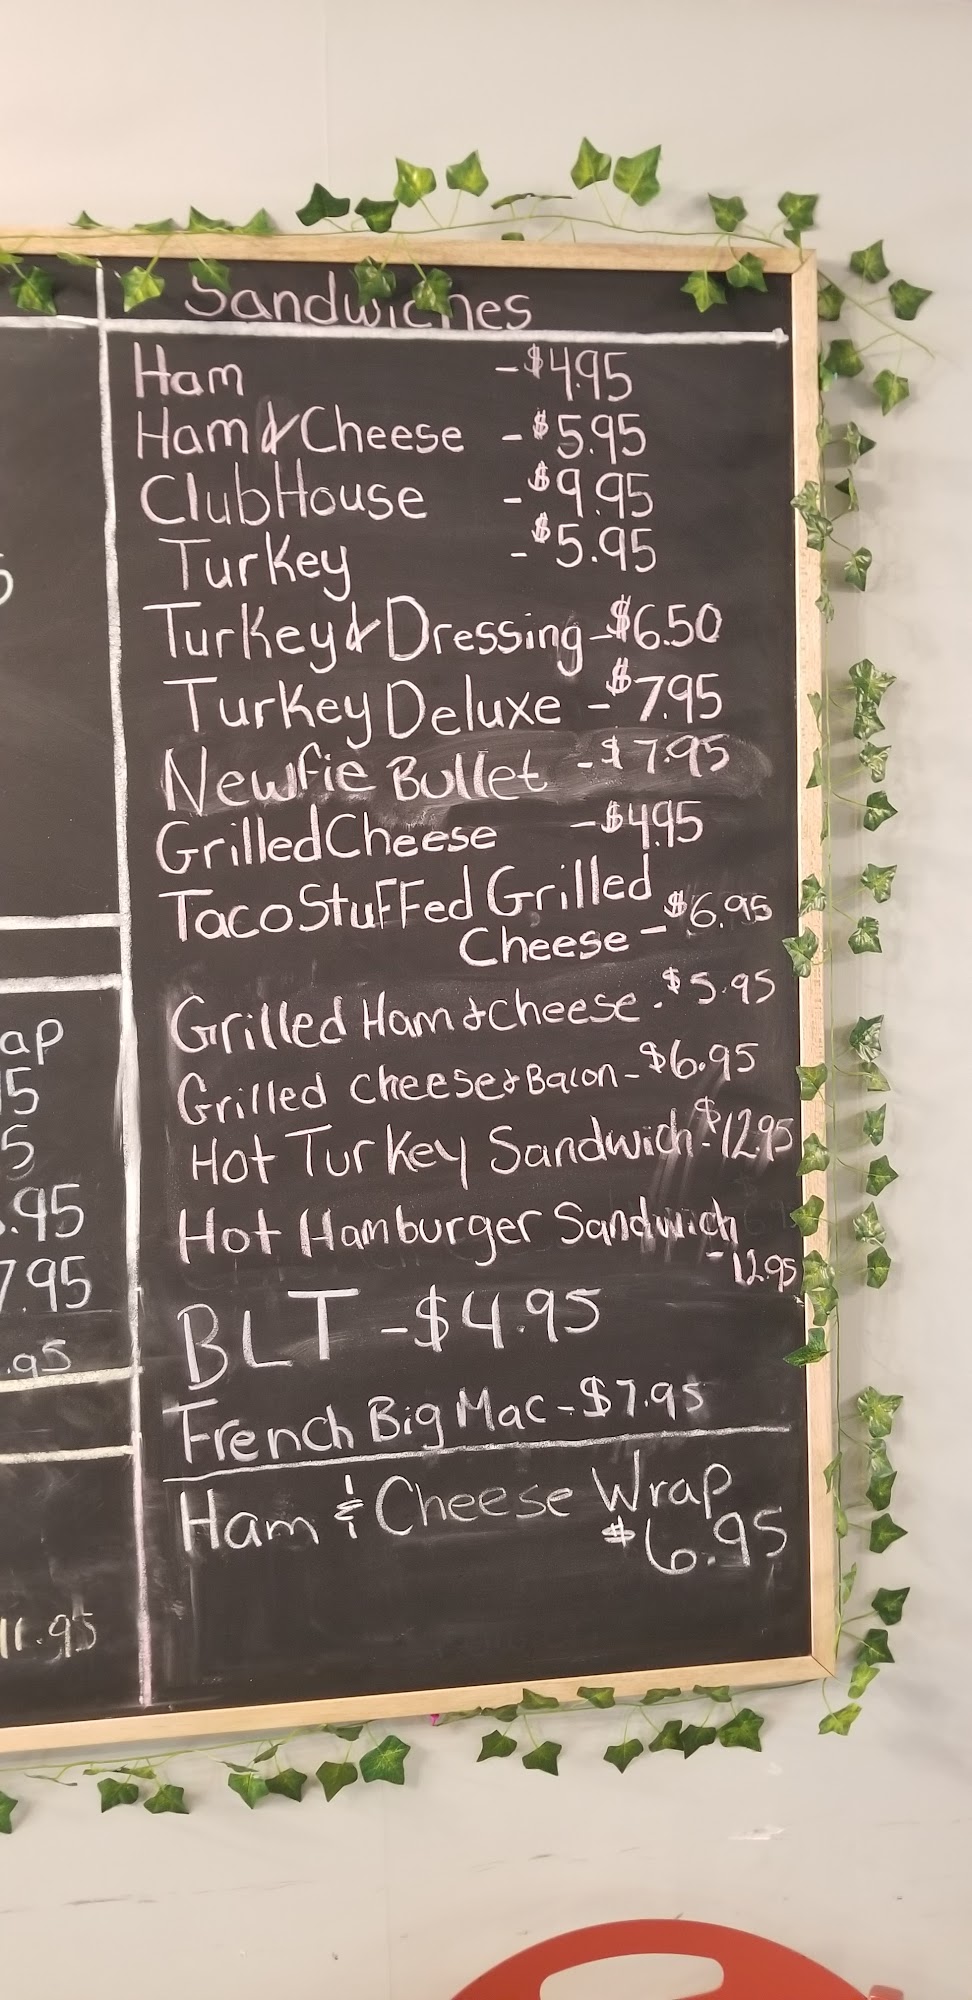 Sandwiches
Ham -$4.95
Ham & Cheese -$5.95
ClubHouse -$9.95
Turkey -$5.95
Turkey & Dressing -$6.50
Turkey Deluxe -$7.95
Newfie Bullet -$7.95
Grilled Cheese -$4.95
Taco Stuffed Grilled
Cheese - $6.95
Grilled Ham & Cheese - $5.95
Grilled Cheese & Bacon - $6.95
Hot Turkey Sandwich - $12.95
Hot Hamburger Sandwich
- 12.95
BLT - $4.95
French Big Mac - $7.95
Ham & Cheese Wrap
$6.95
5
ap
15
5
.95
7.95
.95
11.95